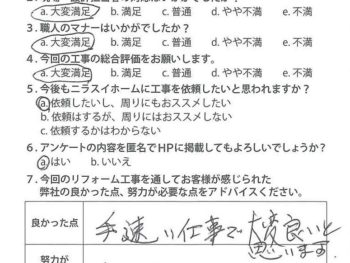 a. 大変満足 b. 満足 c. 普通 d. やや不満 e. 不満
3. 職人のマナーはいかがでしたか?
a. 大変満足 b. 満足 c. 普通 d. やや不満 e. 不満
4. 今回の工事の総合評価をお願いします。
a. 大変満足 b. 満足 c. 普通 d. やや不満 e. 不満
5. 今後もニラスイホームに工事を依頼したいと思われますか?
a. 依頼したいし、周りにもおススメしたい
b. 依頼はするが、周りにはおススメしない
c. 依頼するかはわからない
6. アンケートの内容を匿名でHPに掲載してもよろしいでしょうか?
a. はい b. いいえ
7. 今回のリフォーム工事を通してお客様が感じられた
弊社の良かった点、努力が必要な点をアドバイスください。
良かった点
手速い仕事で大変良いと
思います。
努力が